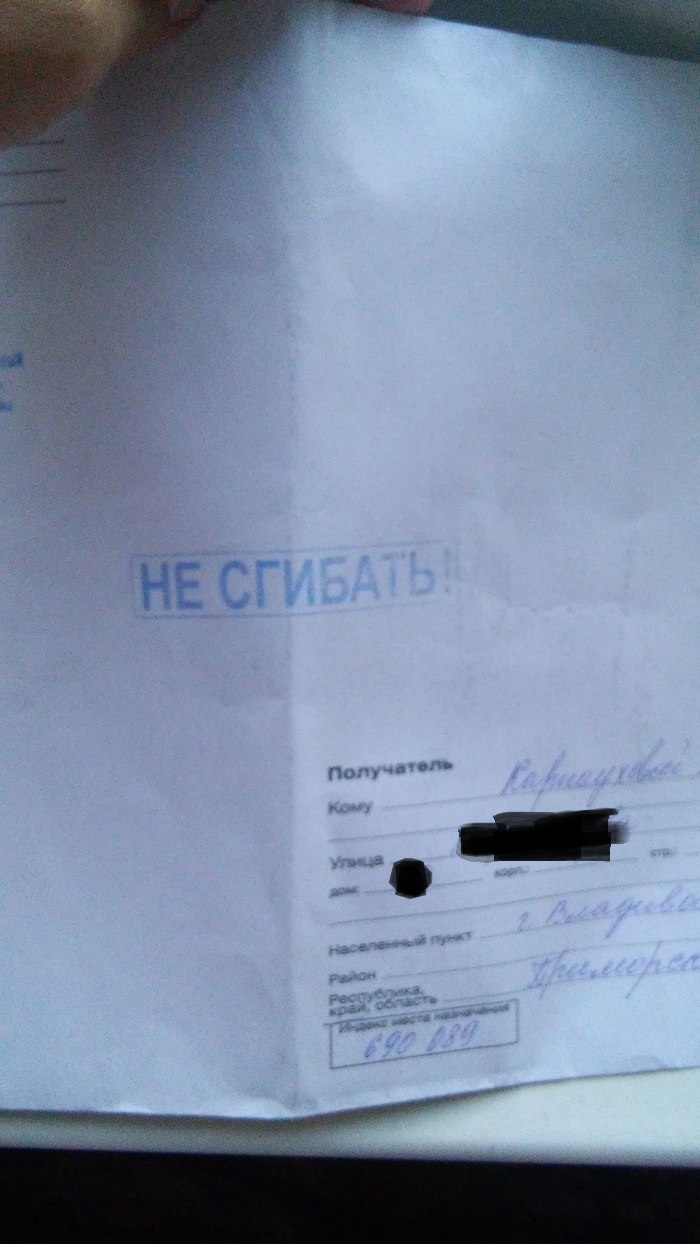 НЕ СГИБАТЬ!
Получатель
Кому Карнауховой
Улица
дом: корп.: стр.:
Населенный пункт г. Владивос
Район
Республика,
край, область Приморск
Индекс места назначения
690 089